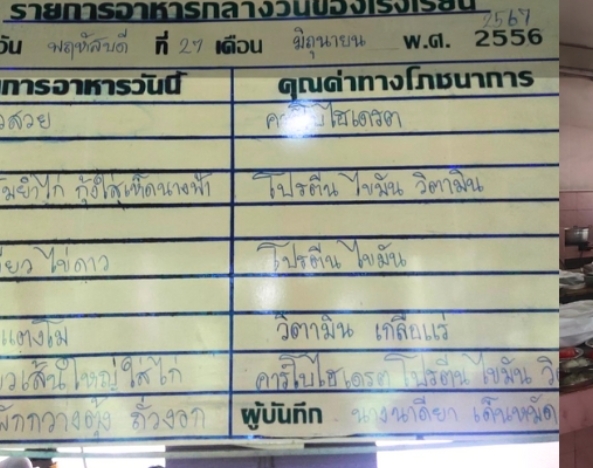 รายการอาหารกลางวันของโรงเรียน
วัน พฤหัสบดี ที่ 27 เดือน มิถุนายน พ.ศ. 2556 2567
การอาหารวันนี้ คุณค่าทางโภชนาการ
วสวย คาร์โบไฮเดรต
มยำไก่ กุ้งใส่เห็ดนางฟ้า โปรตีน ไขมัน วิตามิน
ียว ไข่ดาว โปรตีน ไขมัน
แตงโม วิตามิน เกลือแร่
วเส้นใหญ่ใส่ไก่ คาร์โบไฮเดรต โปรตีน ไขมัน วิ
ผักกวางตุ้ง ถั่วงอก ผู้บันทึก นางนาดียา เด็นหมัด